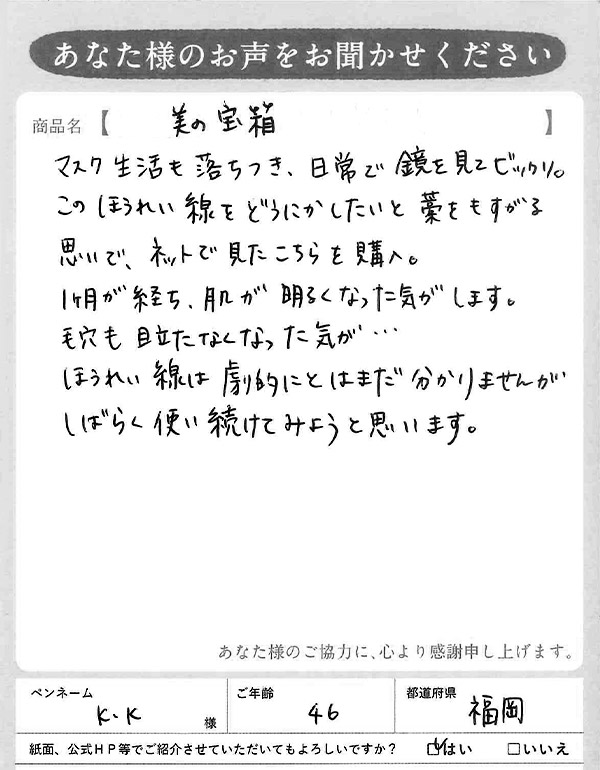 あなた様のお声をお聞かせください
商品名【 美の宝箱 】
マスク生活も落ちつき、日常で鏡を見てビックリ。
このほうれい線をどうにかしたいと藁をもすがる
思いで、ネットで見たこちらを購入。
1ヶ月が経ち、肌が明るくなった気がします。
毛穴も目立たなくなった気が…
ほうれい線は劇的にとはまだ分かりませんが
しばらく使い続けてみようと思います。
あなた様のご協力に、心より感謝申し上げます。
ペンネーム K.K 様 ご年齢 46 都道府県 福岡
紙面、公式HP等でご紹介させていただいてもよろしいですか? ☑はい □いいえ